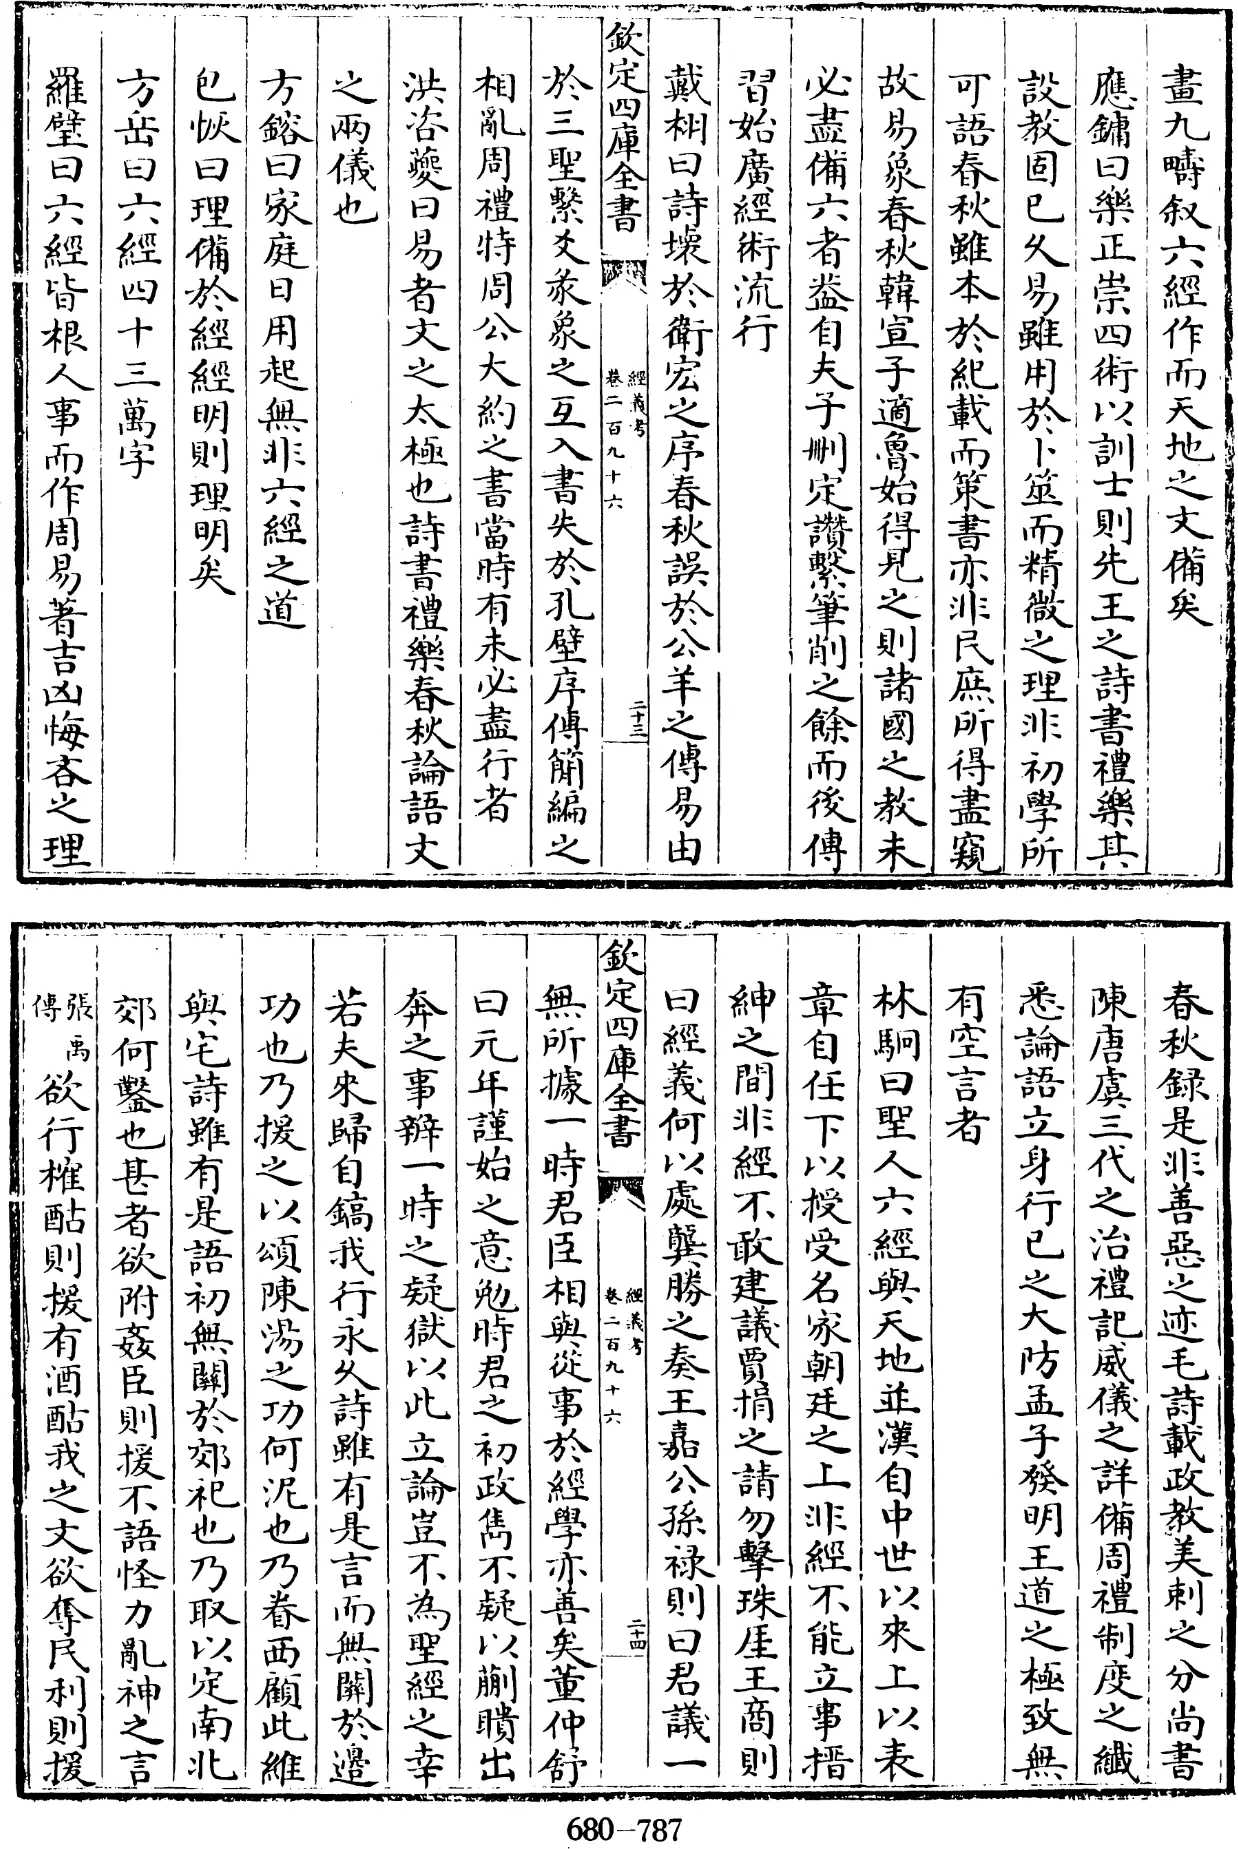 畫九疇叙六經作而天地之文備矣
應鏞曰樂正崇四術以訓士則先王之詩書禮樂其
設教固已久易雖用於卜筮而精微之理非初學所
可語春秋雖本於紀載而策書亦非民庶所得盡窺
故易象春秋韓宣子適魯始得見之則諸國之教未
必盡備六者葢自夫子刪定讚繫筆削之餘而後傳
習始廣經術流行
戴栩曰詩壞於衛宏之序春秋誤於公羊之傳易由
欽定四庫全書
經義考
卷二百九十六
二十三
於三聖繫爻彖象之互入書失於孔壁序傳簡編之
相亂周禮特周公大約之書當時有未必盡行者
洪咨夔曰易者文之太極也詩書禮樂春秋論語文
之兩儀也
方鎔曰家庭日用起無非六經之道
包恢曰理備於經經明則理明矣
方岳曰六經四十三萬字
羅璧曰六經皆根人事而作周易著吉凶悔吝之理
春秋録是非善惡之迹毛詩載政教美刺之分尚書
陳唐虞三代之治禮記威儀之詳備周禮制度之纖
悉論語立身行已之大防孟子發明王道之極致無
有空言者
林駉曰聖人六經與天地並漢自中世以來上以表
章自任下以授受名家朝廷之上非經不能立事搢
紳之間非經不敢建議賈捐之請勿擊珠厓王商則
曰經義何以處龔勝之奏王嘉公孫禄則曰君議一
欽定四庫全書
經義考
卷二百九十六
二十四
無所據一時君臣相與從事於經學亦善矣董仲舒
曰元年謹始之意勉時君之初政雋不疑以蒯聵出
奔之事辨一時之疑獄以此立論豈不為聖經之幸
若夫來歸自鎬我行永久詩雖有是言而無關於邊
功也乃援之以頌陳湯之功何泥也乃眷西顧此維
與宅詩雖有是語初無關於郊祀也乃取以定南北
郊何鑿也甚者欲附姦臣則援不語怪力亂神之言
張禹傳欲行榷酤則援有酒酤我之文欲奪民利則援
680-787